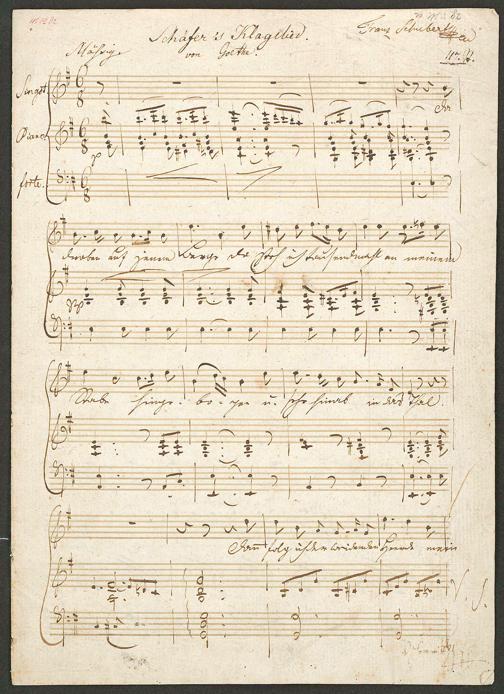 Schäfer's Klaglied.
von Goethe.
Franz Schubert
Mäßig
Singst.
Piano
forte.
Da
droben auf jenem Berge da steh ich tausendmahl an meinem
pp
Stabe hinge - bo - gen u. sehe hinab in das Thal
Dann folg ich der weidenden Heerde mein
V. S.